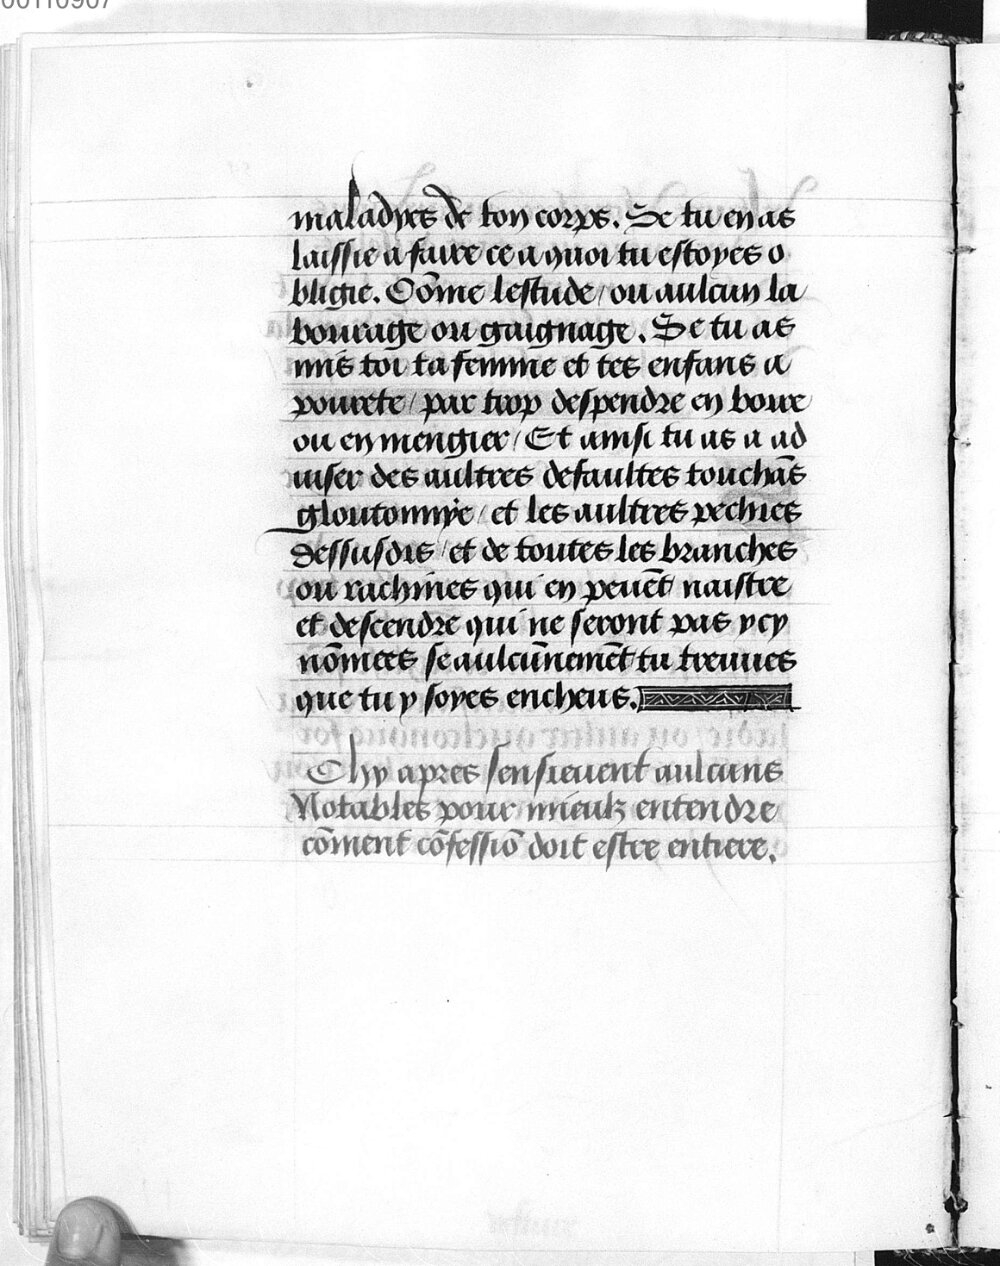 maladyes de ton corps. Se tu en as
laissie a faire ce a quoi tu estoyes o
bligie. Cõme lestude / ou aulcun la
bourage ou gaignage. Se tu as
mis toi ta femme et tes enfans a
pourete / par trop despendre en boire
ou en mengier / Et ainsi tu as a ad
uiser des aultres defaultes touchãs
gloutonnye / et les aultres pechies
dessusdis / et de toutes les branches
ou rachines qui en peuẽt naistre
et descendre qui ne seront pas ycy
nõmees se aulcũnemẽt tu treuues
que tu y soyes encheus.
Chy apres sensieuent aulcuns
Notables pour mieulz entendre
cõment cõfessiõ doit estre entiere.